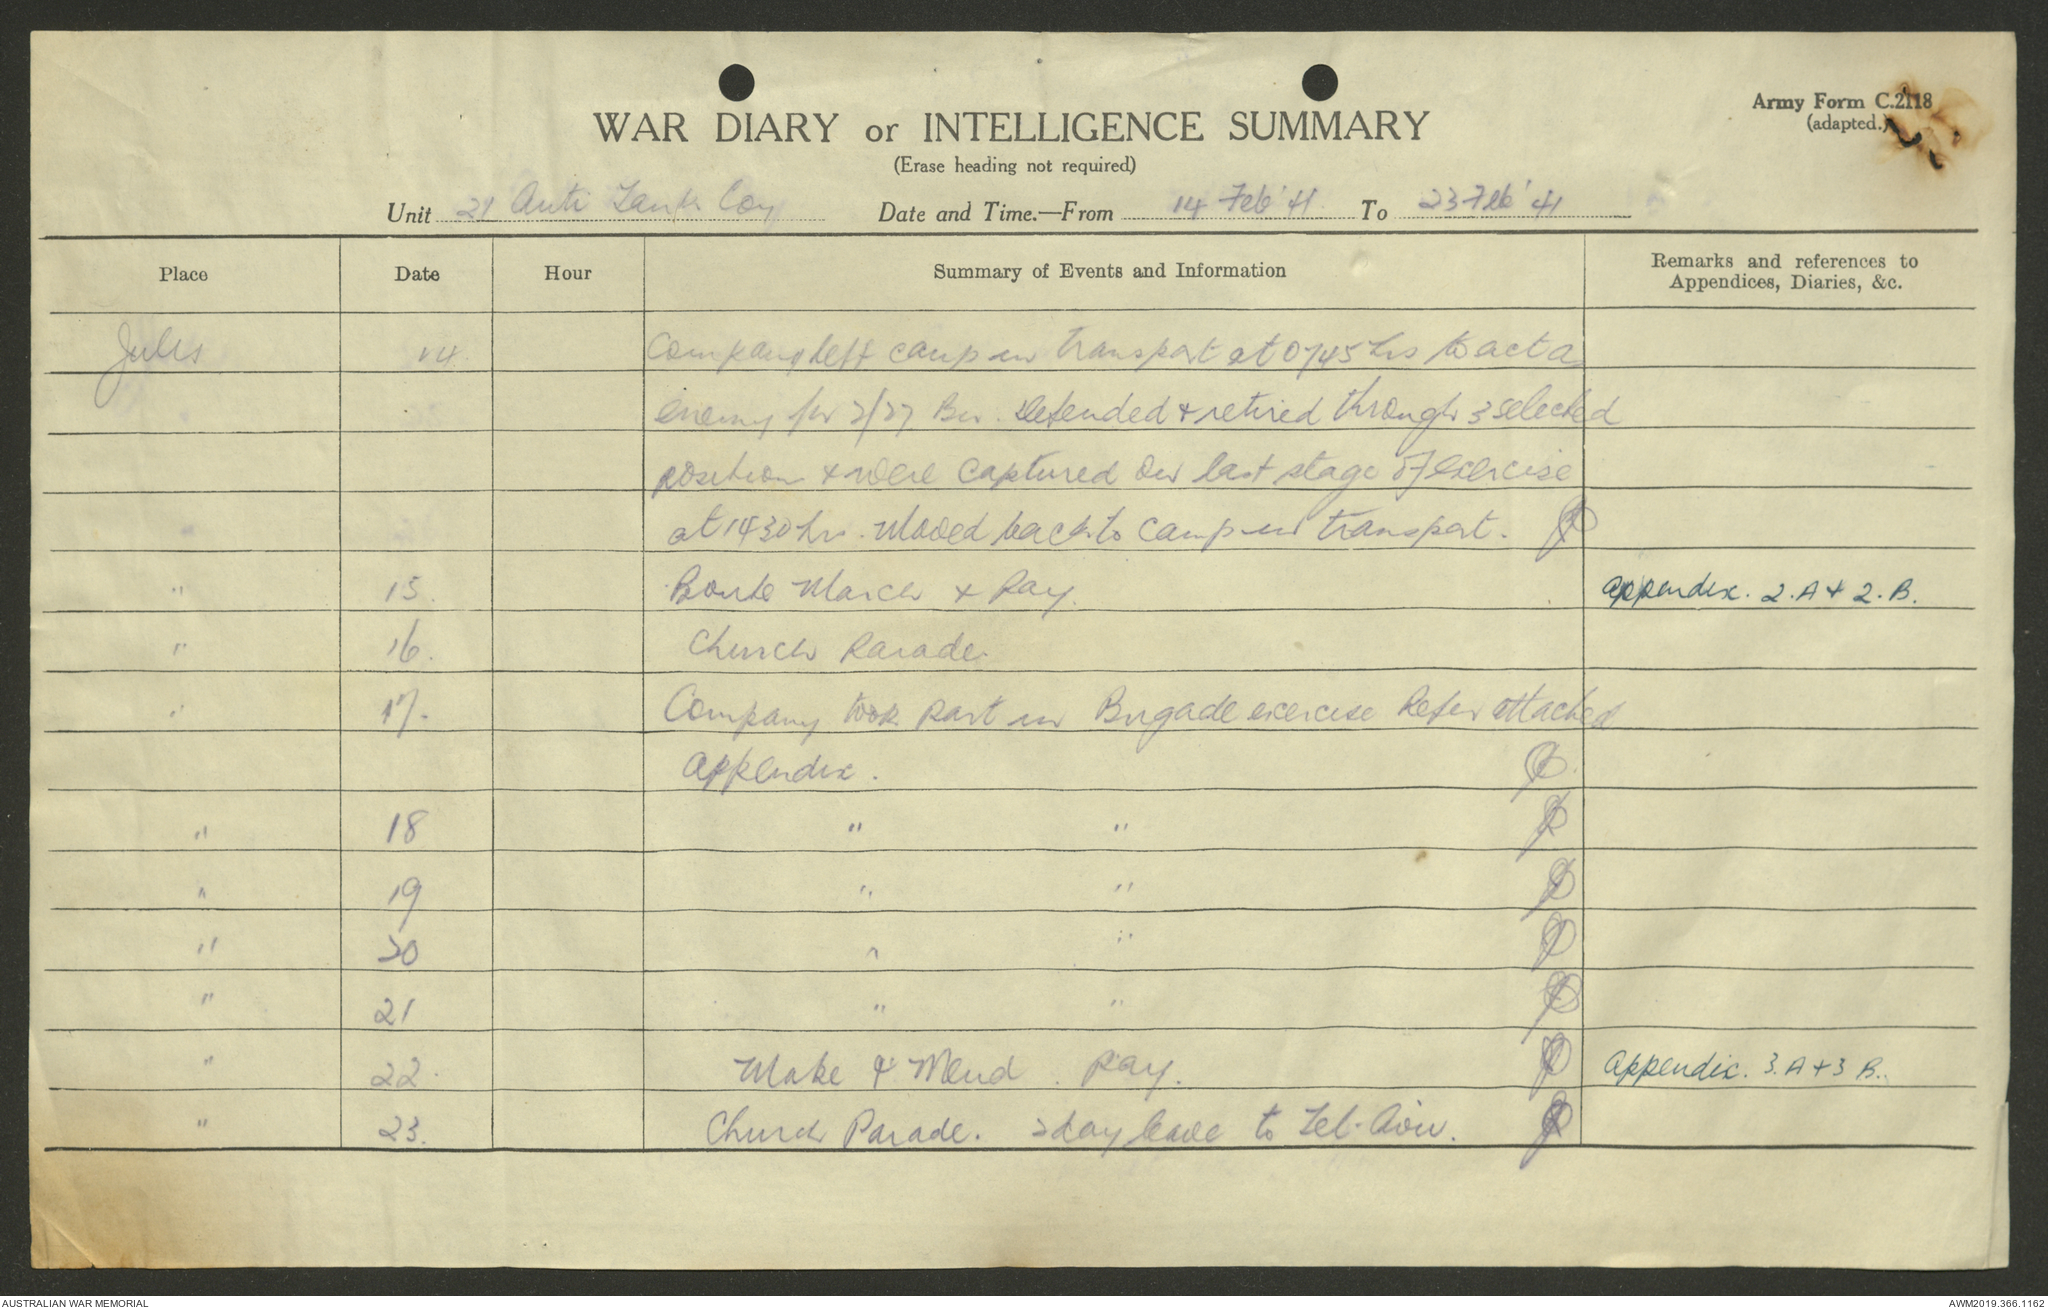 Army Form C.2118
(adapted.)
WAR DIARY or INTELLIGENCE SUMMARY
(Erase heading not required)
Unit 21 Anti Tank Coy Date and Time.—From 14 Feb '41 To 23 Feb '41
Place Date Hour Summary of Events and Information Remarks and references to Appendices, Diaries, &c.
Julis 14. Company left camp in transport at 0745 hrs to act as
enemy for 2/27 Bn. Defended & retired through 3 selected
position & were captured on last stage of exercise
at 1430 hrs. Moved back to camp in transport.
" 15. Route March & Pay. Appendix. 2.A + 2.B.
" 16. Church Parade
" 17. Company took part in Brigade exercise Refer attached
Appendix.
" 18 " "
" 19 " "
" 20 " "
" 21 " "
" 22. Make & Mend. Pay. Appendix. 3.A + 3 B.
" 23. Church Parade. 2 day leave to Tel-Aviv.
AUSTRALIAN WAR MEMORIAL AWM2019.366.1162